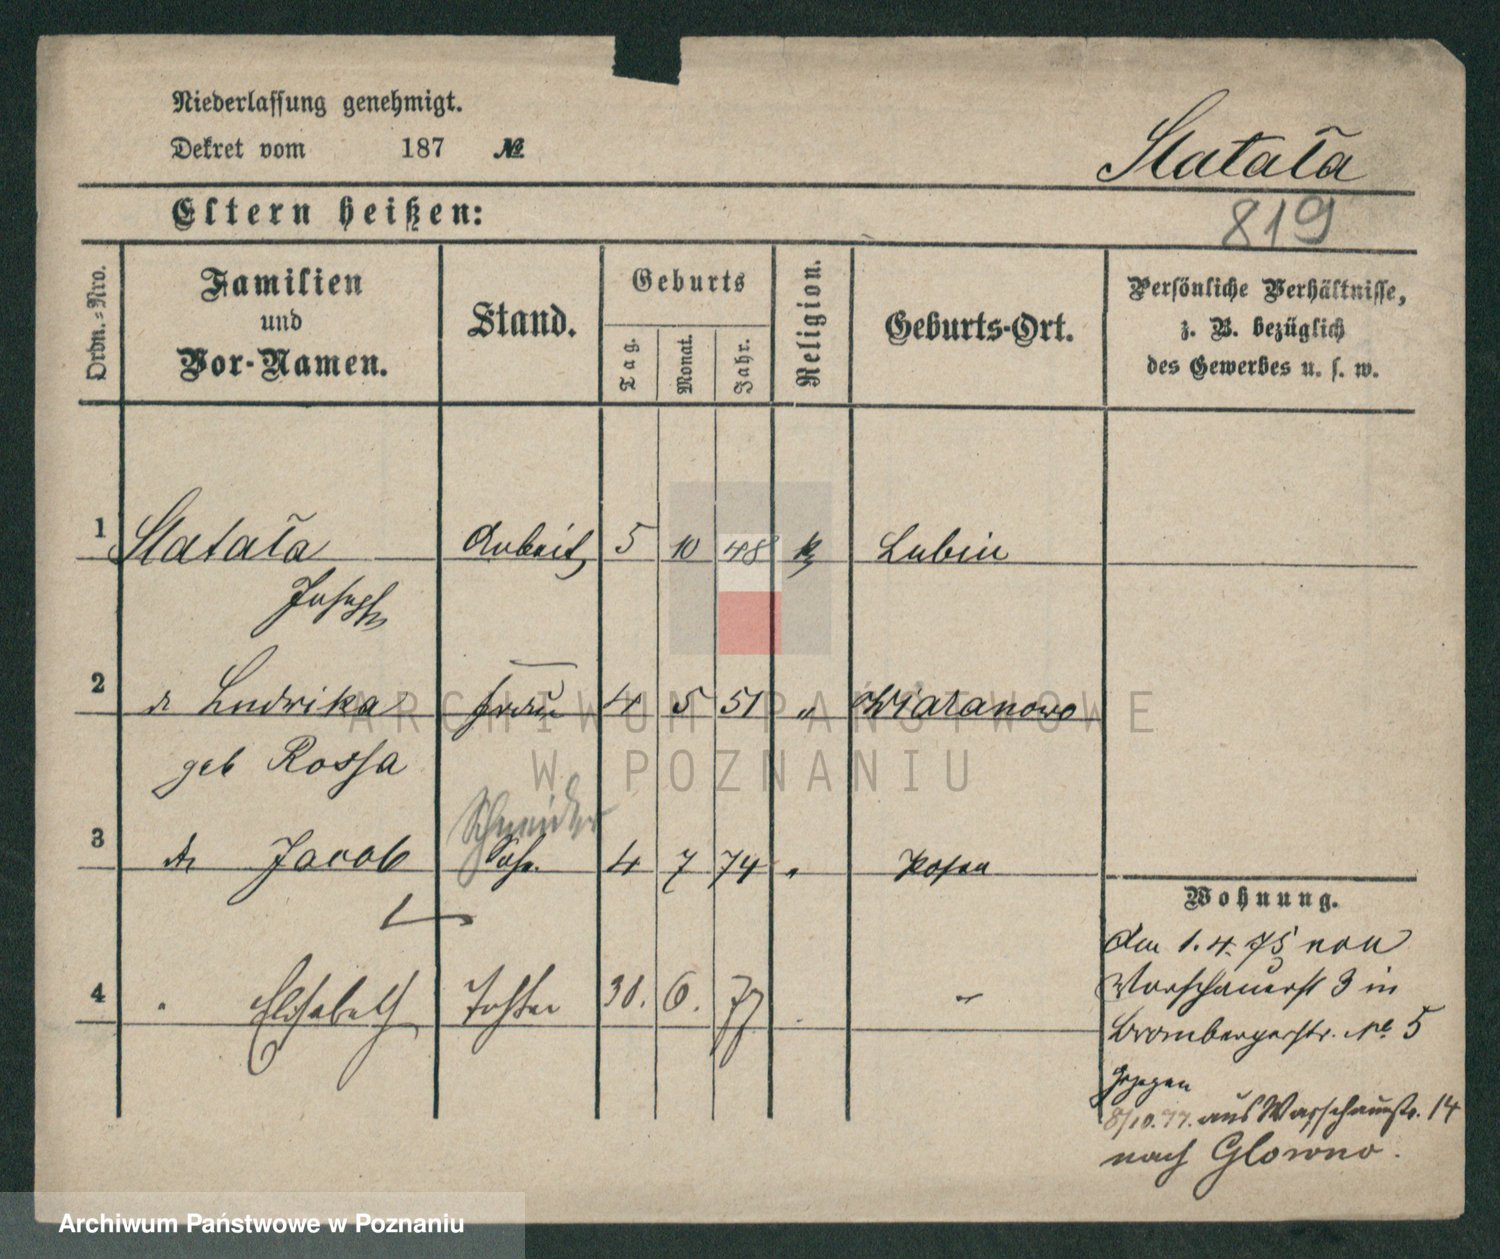 Niederlassung genehmigt.
Dekret vom 187 №
Statała
819
Eltern heißen:
Ordn.-Nro.
Familien
und
Vor-Namen.
Stand.
Geburts
Tag.
Monat.
Jahr.
Religion.
Geburts-Ort.
Persönliche Verhältnisse,
z. B. bezüglich
des Gewerbes u. s. w.
1 Statała Arbeit 5 10 48 k Lubin
Joseph
2 Ludwika Frau 4 5 51 "
geb Rossa
Schneider
3 Jacob Sohn 4 7 74 " Posen
4 " Elisabeth Tochter 30. 6. 77
Wohnung.
Am 1. 4. 75 von
Warschauerst 3 in
Brombergerstr. No 5
Gezogen
8/10. 77. aus Warschauerstr. 14
nach Glowno.
ARCHIWUM PAŃSTWOWE
W POZNANIU
Archiwum Państwowe w Poznaniu